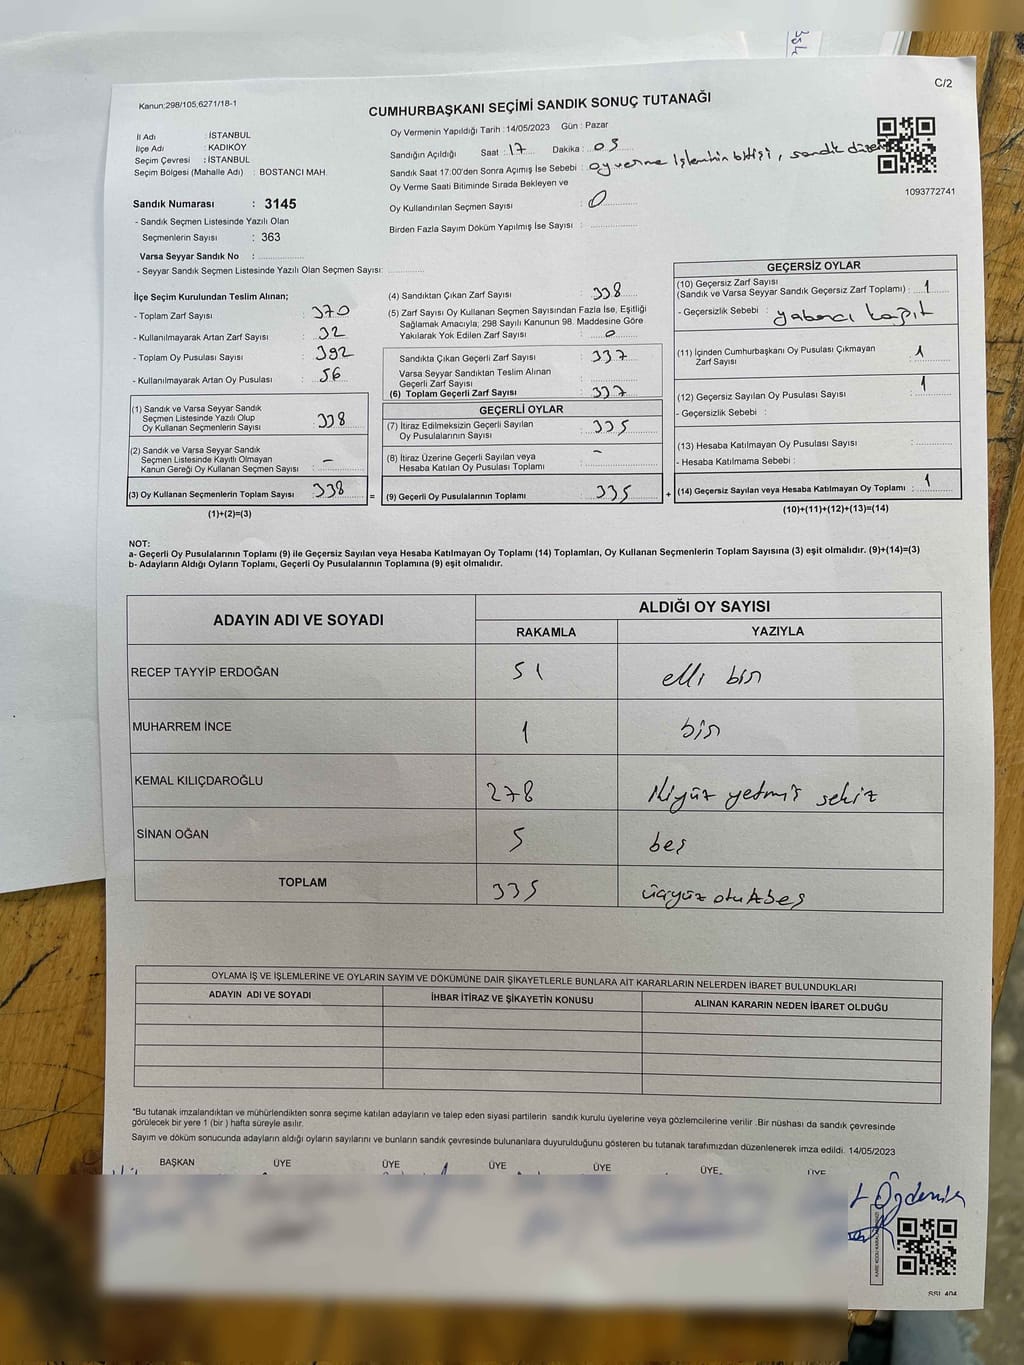 C/2
Kanun:298/105,6271/18-1
CUMHURBAŞKANI SEÇİMİ SANDIK SONUÇ TUTANAĞI
İl Adı : İSTANBUL
İlçe Adı : KADIKÖY
Seçim Çevresi : İSTANBUL
Seçim Bölgesi (Mahalle Adı) : BOSTANCI MAH.
Oy Vermenin Yapıldığı Tarih : 14/05/2023 Gün : Pazar
Sandığın Açıldığı Saat : 17 Dakika : 05
Sandık Saat 17:00'den Sonra Açımış İse Sebebi : oy verme işleminin bitişi, sandık
Oy Verme Saati Bitiminde Sırada Bekleyen ve
Oy Kullandırılan Seçmen Sayısı : 0
Birden Fazla Sayım Döküm Yapılmış İse Sayısı :
1093772741
Sandık Numarası : 3145
- Sandık Seçmen Listesinde Yazılı Olan
Seçmenlerin Sayısı : 363
Varsa Seyyar Sandık No :
- Seyyar Sandık Seçmen Listesinde Yazılı Olan Seçmen Sayısı:
İlçe Seçim Kurulundan Teslim Alınan;
- Toplam Zarf Sayısı : 370
- Kullanılmayarak Artan Zarf Sayısı : 32
- Toplam Oy Pusulası Sayısı : 392
- Kullanılmayarak Artan Oy Pusulası : 56
(1) Sandık ve Varsa Seyyar Sandık
Seçmen Listesinde Yazılı Olup
Oy Kullanan Seçmenlerin Sayısı : 338
(2) Sandık ve Varsa Seyyar Sandık
Seçmen Listesinde Kayıtlı Olmayan
Kanun Gereği Oy Kullanan Seçmen Sayısı : -
(3) Oy Kullanan Seçmenlerin Toplam Sayısı : 338
(1)+(2)=(3)
(4) Sandıktan Çıkan Zarf Sayısı : 338
(5) Zarf Sayısı Oy Kullanan Seçmen Sayısından Fazla İse, Eşitliği
Sağlamak Amacıyla, 298 Sayılı Kanunun 98. Maddesine Göre
Yakılarak Yok Edilen Zarf Sayısı : 0
Sandıkta Çıkan Geçerli Zarf Sayısı : 337
Varsa Seyyar Sandıktan Teslim Alınan
Geçerli Zarf Sayısı :
(6) Toplam Geçerli Zarf Sayısı : 337
GEÇERLİ OYLAR
(7) İtiraz Edilmeksizin Geçerli Sayılan
Oy Pusulalarının Sayısı : 335
(8) İtiraz Üzerine Geçerli Sayılan veya
Hesaba Katılan Oy Pusulası Toplamı : -
= (9) Geçerli Oy Pusulalarının Toplamı : 335
GEÇERSİZ OYLAR
(10) Geçersiz Zarf Sayısı
(Sandık ve Varsa Seyyar Sandık Geçersiz Zarf Toplamı) : 1
- Geçersizlik Sebebi : yabancı kağıt
(11) İçinden Cumhurbaşkanı Oy Pusulası Çıkmayan
Zarf Sayısı : 1
(12) Geçersiz Sayılan Oy Pusulası Sayısı : 1
- Geçersizlik Sebebi :
(13) Hesaba Katılmayan Oy Pusulası Sayısı :
- Hesaba Katılmama Sebebi :
+ (14) Geçersiz Sayılan veya Hesaba Katılmayan Oy Toplamı : 1
(10)+(11)+(12)+(13)=(14)
NOT:
a- Geçerli Oy Pusulalarının Toplamı (9) ile Geçersiz Sayılan veya Hesaba Katılmayan Oy Toplamı (14) Toplamları, Oy Kullanan Seçmenlerin Toplam Sayısına (3) eşit olmalıdır. (9)+(14)=(3)
b- Adayların Aldığı Oyların Toplamı, Geçerli Oy Pusulalarının Toplamına (9) eşit olmalıdır.
ADAYIN ADI VE SOYADI
ALDIĞI OY SAYISI
RAKAMLA YAZIYLA
RECEP TAYYİP ERDOĞAN 51 elli bir
MUHARREM İNCE 1 bir
KEMAL KILIÇDAROĞLU 278 ikiyüz yetmiş sekiz
SİNAN OĞAN 5 beş
TOPLAM 335 üçyüz otuzbeş
OYLAMA İŞ VE İŞLEMLERİNE VE OYLARIN SAYIM VE DÖKÜMÜNE DAİR ŞİKAYETLERLE BUNLARA AİT KARARLARIN NELERDEN İBARET BULUNDUKLARI
ADAYIN ADI VE SOYADI İHBAR İTİRAZ VE ŞİKAYETİN KONUSU ALINAN KARARIN NEDEN İBARET OLDUĞU
*Bu tutanak imzalandıktan ve mühürlendikten sonra seçime katılan adayların ve talep eden siyasi partilerin sandık kurulu üyelerine veya gözlemcilerine verilir .Bir nüshası da sandık çevresinde
görülecek bir yere 1 (bir ) hafta süreyle asılır.
Sayım ve döküm sonucunda adayların aldığı oyların sayılarını ve bunların sandık çevresinde bulunanlara duyurulduğunu gösteren bu tutanak tarafımızdan düzenlenerek imza edildi. 14/05/2023
BAŞKAN ÜYE ÜYE ÜYE ÜYE ÜYE ÜYE